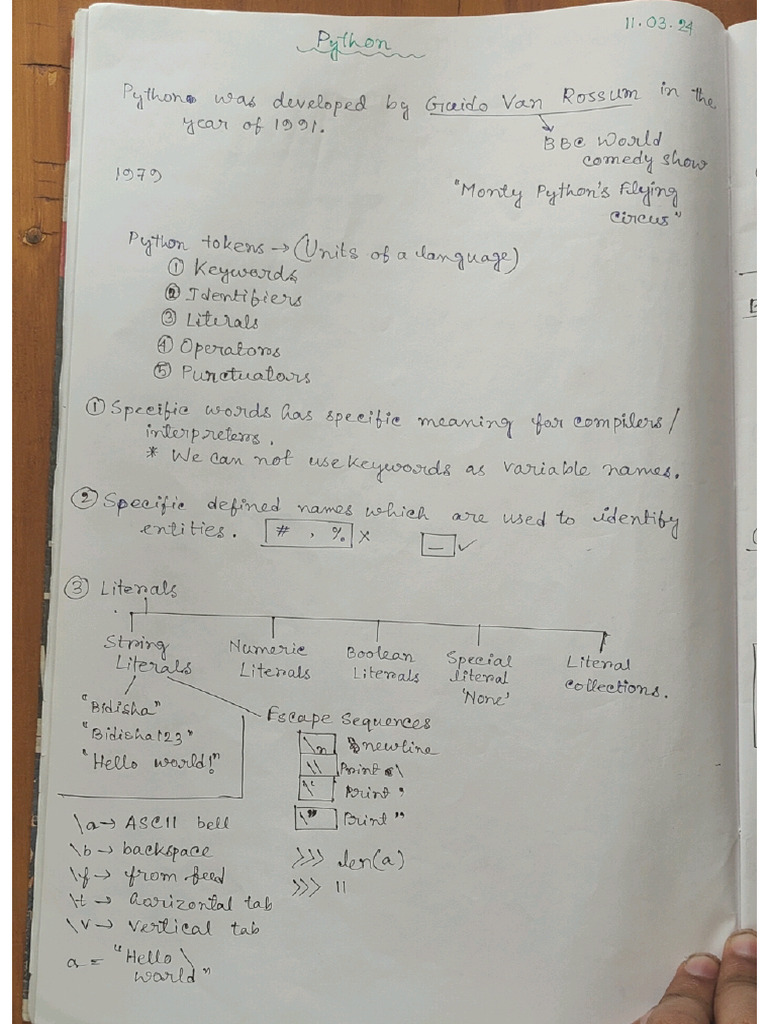 11.03.24
Python
Python was developed by Guido Van Rossum in the
year of 1991.
BBC World
comedy show
1979
"Monty Python's Flying
circus"
Python tokens → (Units of a language)
① Keywords
② Identifiers
③ Literals
④ Operators
⑤ Punctuators
① Specific words has specific meaning for compilers/
interpreters.
* We can not use keywords as variable names.
② Specific defined names which are used to identify
entities. # , % × _ ✓
③ Literals
String Literals
Numeric Literals
Boolean Literals
Special literal 'None'
Literal collections.
"Bidisha"
"Bidisha123"
"Hello world!"
Escape Sequences
\n newline
\\ Print \
\' Print '
\" Print "
\a → ASCII bell
\b → backspace
\f → from feed
\t → harizontal tab
\v → vertical tab
>>> len(a)
>>> 11
a = "Hello \
world"